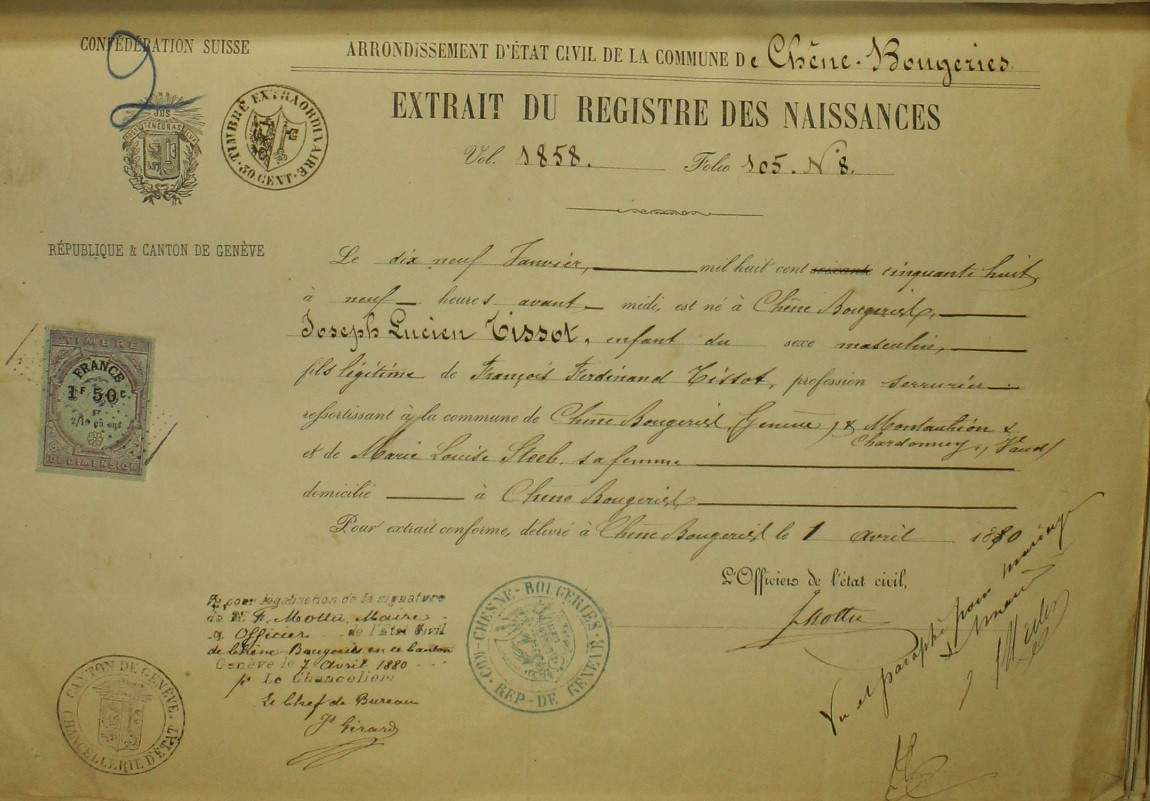 2
CONFÉDÉRATION SUISSE
ARRONDISSEMENT D'ÉTAT CIVIL DE LA COMMUNE De Chêne-Bougeries
EXTRAIT DU REGISTRE DES NAISSANCES
Vol. 1858. Folio 105. N° 8.
POST TENEBRAS LUX
TIMBRE EXTRAORDINAIRE
50 CENT.
RÉPUBLIQUE & CANTON DE GENÈVE
Le dix neuf Janvier, mil huit cent soixante cinquante huit
à neuf heures avant midi, est né à Chêne Bougeries,
Joseph Lucien Tissot, enfant du sexe masculin,
fils légitime de François Ferdinand Tissot, profession serrurier
ressortissant à la commune de Chêne Bougeries, (Genève) &
Chardonney, Vaud
et de Marie Louise Steeb, sa femme
domicilié à Chêne Bougeries
Pour extrait conforme, délivré à Chêne Bougeries le 1 avril 1880
L'Officier de l'état civil,
Mottu
TIMBRE
FRANCE
1F 50C.
ET
2/10 en sus
DE DIMENSION
Vu pour légalisation de la signature
de M. F. Mottu, Maire
& Officier de l'Etat Civil
de Chêne-Bougeries en ce Canton
Genève le 7 Avril 1880
pr Le Chancelier
Le Chef de Bureau
Js Girard
COM. CHESNE-BOUGERIES
REP. DE GENEVE
CANTON DE GENÈVE
CHANCELLERIE D'ÉTAT
Vu et paraphé pour mariage